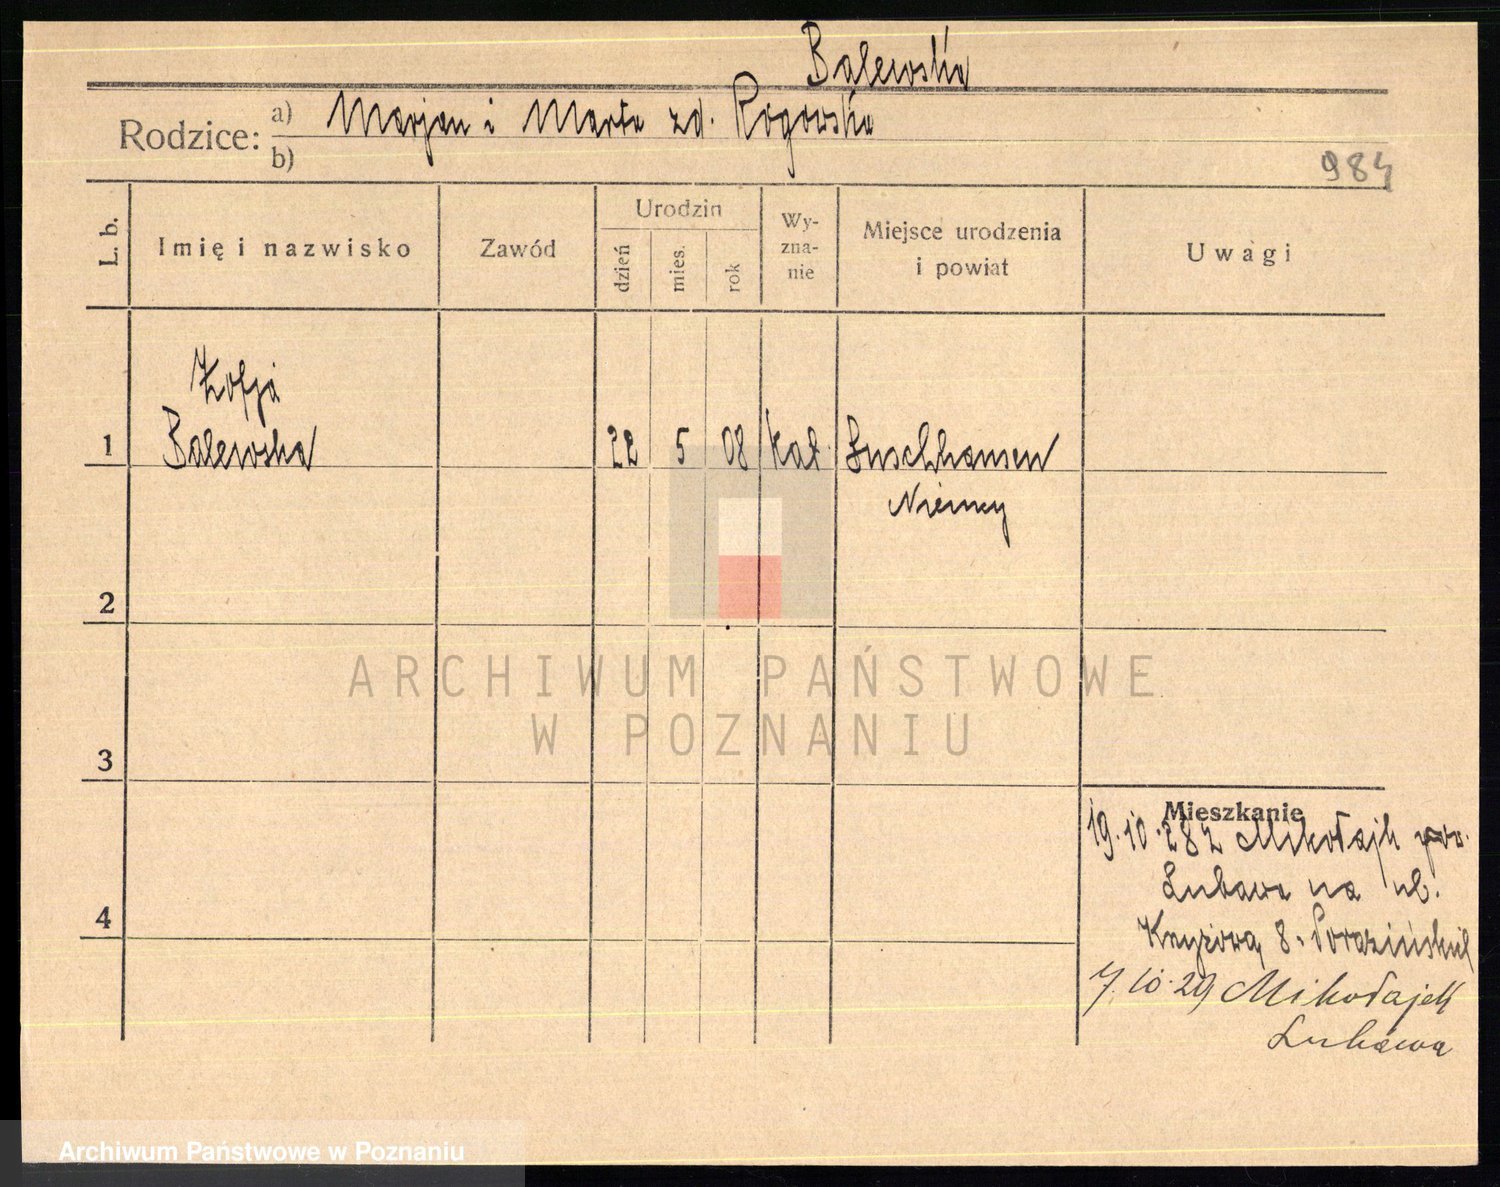 Balewska
Rodzice: a) Marjan i Marta zd. Rogowska
b)
984
L. b.
Imię i nazwisko
Zawód
Urodzin
dzień
mies.
rok
Wy-
zna-
nie
Miejsce urodzenia
i powiat
Uwagi
Zofja
1 Balewska 22 5 08 kat. Buschhausen
Niemcy
2
ARCHIWUM PAŃSTWOWE
W POZNANIU
3
Mieszkanie
19.10.28 z Mikołajk pow.
Lubawa na ul.
8.
4
7.10.29 Mikołajki
Lubawa
Archiwum Państwowe w Poznaniu